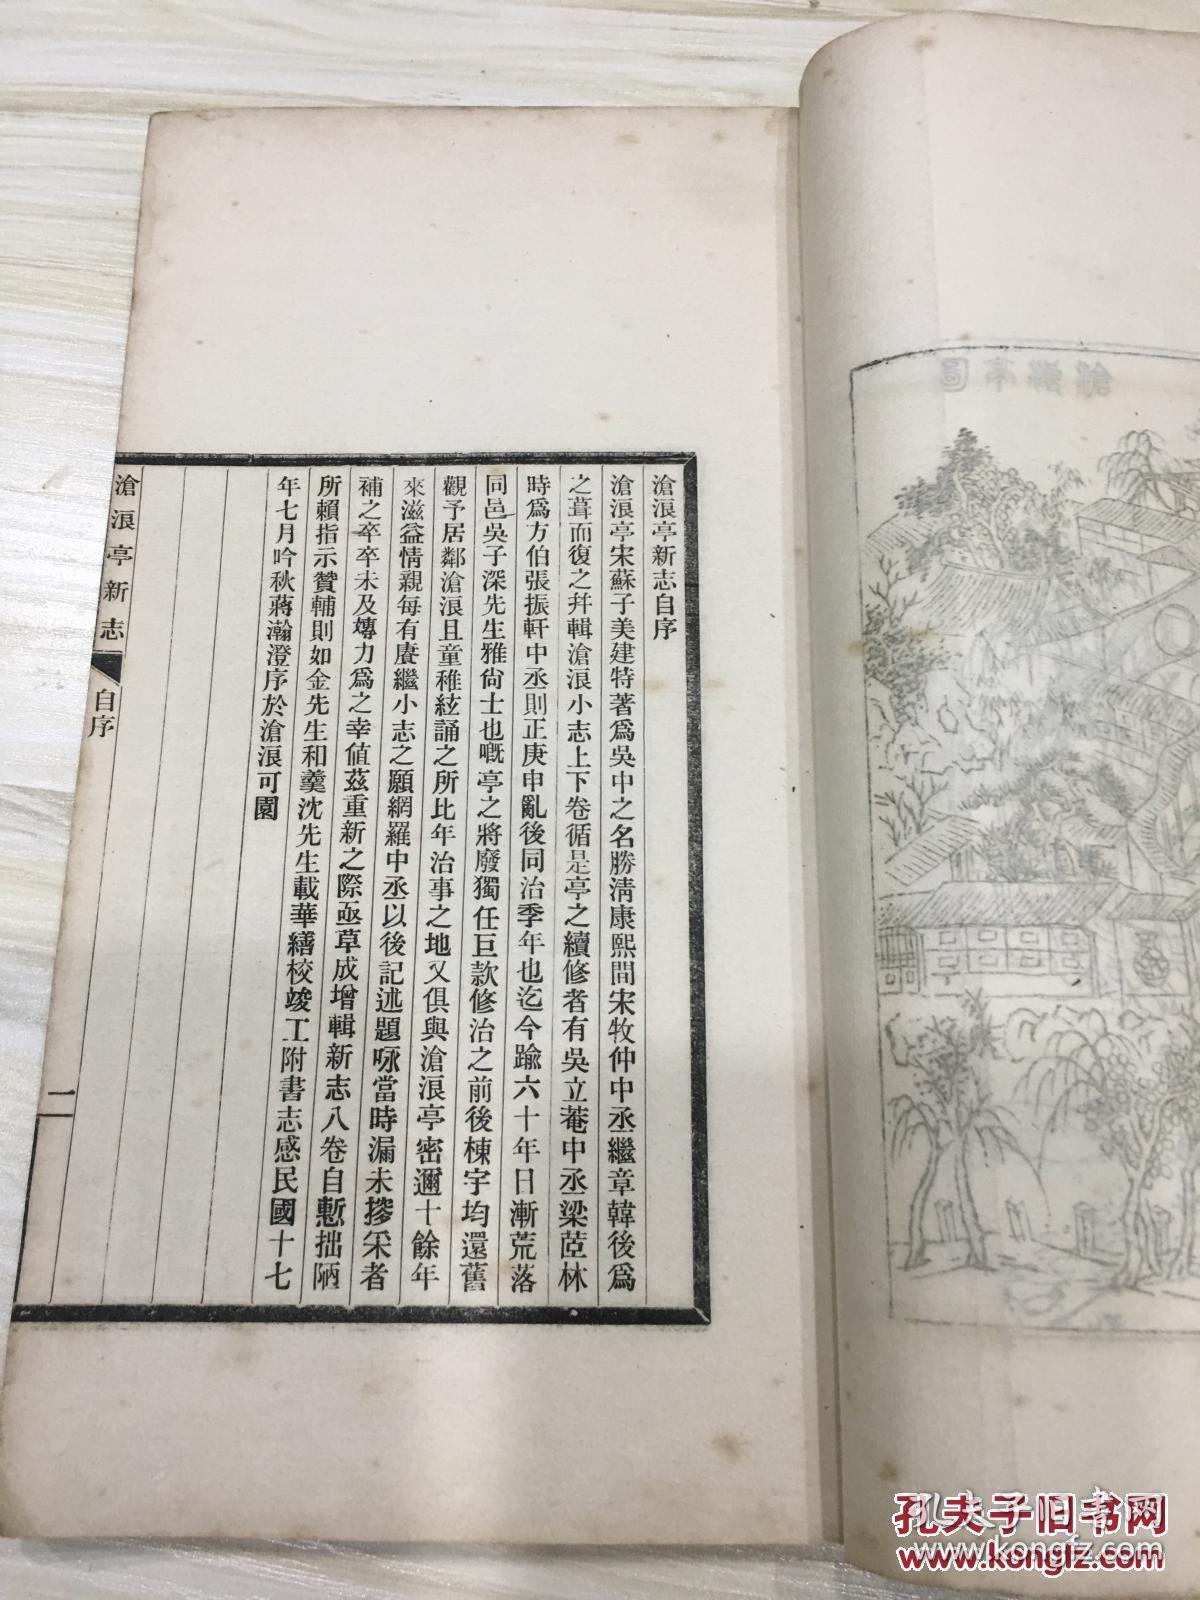 滄浪亭新志自序
滄浪亭宋蘇子美建特著爲吳中之名勝清康熙間宋牧仲中丞繼章韓後爲
之葺而復之幷輯滄浪小志上下卷循是亭之續修者有吳立菴中丞梁茝林
時爲方伯張振軒中丞則正庚申亂後同治季年也迄今踰六十年日漸荒落
同邑吳子深先生雅尙士也嘅亭之將廢獨任巨款修治之前後棟宇均還舊
觀予居鄰滄浪且童稚絃誦之所比年治事之地又俱與滄浪亭密邇十餘年
來滋益情親每有賡繼小志之願網羅中丞以後記述題咏當時漏未摉采者
補之卒卒未及嫥力爲之幸値茲重新之際亟草成增輯新志八卷自慙拙陋
所賴指示贊輔則如金先生和羹沈先生載華繕校竣工附書志感民國十七
年七月吟秋蔣瀚澄序於滄浪可園
滄浪亭新志
自序
二
滄浪亭圖
孔夫子旧书网
www.kongfz.com